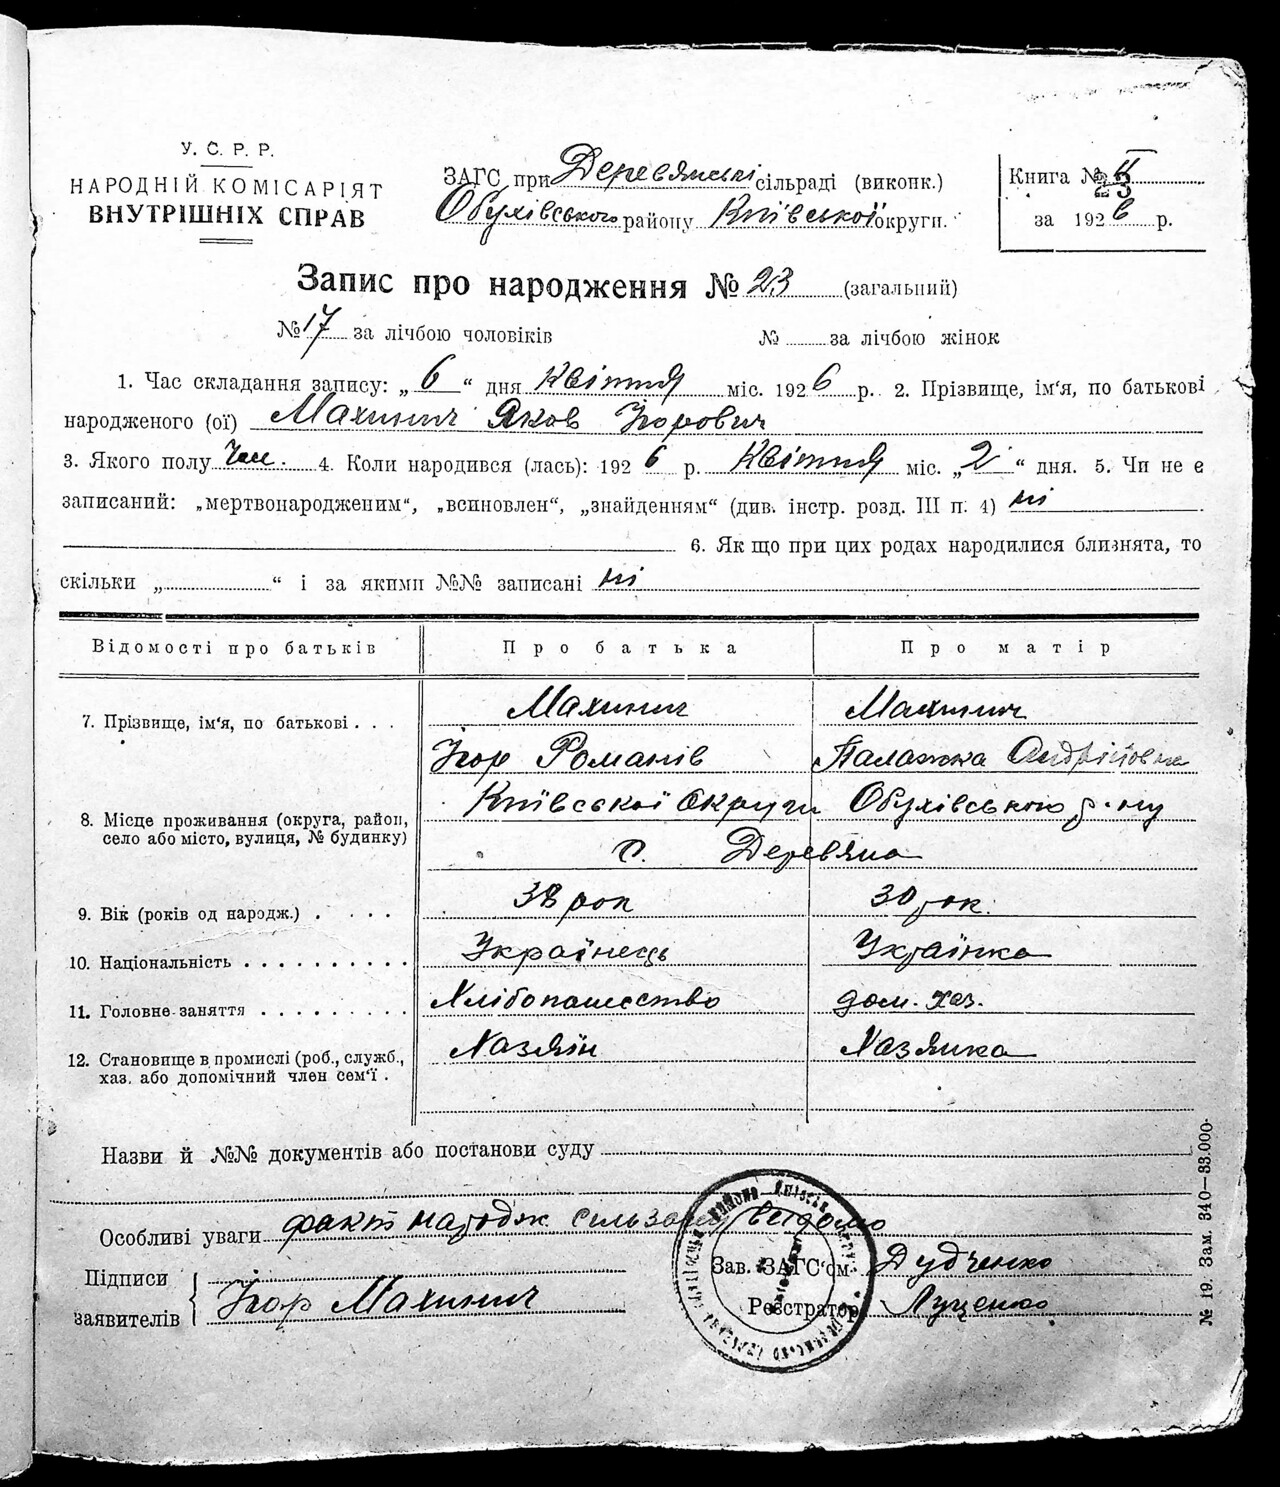 У. С. Р. Р.
НАРОДНІЙ КОМІСАРІЯТ
ВНУТРІШНІХ СПРАВ
ЗАГС при Деревянські сільраді (виконк.)
Обухівського району Київської округи.
Книга № II
23
за 1926 р.
Запис про народження № 23 (загальний)
№ 17 за лічбою чоловіків № за лічбою жінок
1. Час складання запису: „6“ дня Квітня міс. 1926 р. 2. Прізвище, ім'я, по батькові
народженого (ої) Махинич Яков Ігорович
3. Якого полу Чол. 4. Коли народився (лась): 1926 р. Квітня міс. „2“ дня. 5. Чи не є
записаний: „мертвонародженим“, „всиновлен“, „знайденням“ (див. інстр. розд. III п. 4) ні
6. Як що при цих родах народилися близнята, то
скільки „ “ і за якими №№ записані ні
Відомості про батьків Про батька Про матір
7. Прізвище, ім'я, по батькові . . . Махинич Махинич
Ігор Романів Палажка Андріївна
8. Місце проживання (округа, район, село або місто, вулиця, № будинку) Київської округи Обухівського р-ну
с. Деревяна
9. Вік (років од народж.) . . . . 38 рок 30 рок.
10. Національність . . . . . . . . . . Українець Українка
11. Головне заняття . . . . . . . . . Хлібопашество дом. хаз.
12. Становище в промислі (роб., служб., хаз. або допомічний член сем'ї . Хазяїн Хазяйка
Назви й №№ документів або постанови суду
Особливі уваги факт народж. сільраді відомо
Підписи
заявителів
Ігор Махинич
Зав. ЗАГС'ом Дудченко
Реєстратор Луценко
№ 19. Зам. 340—33.000.